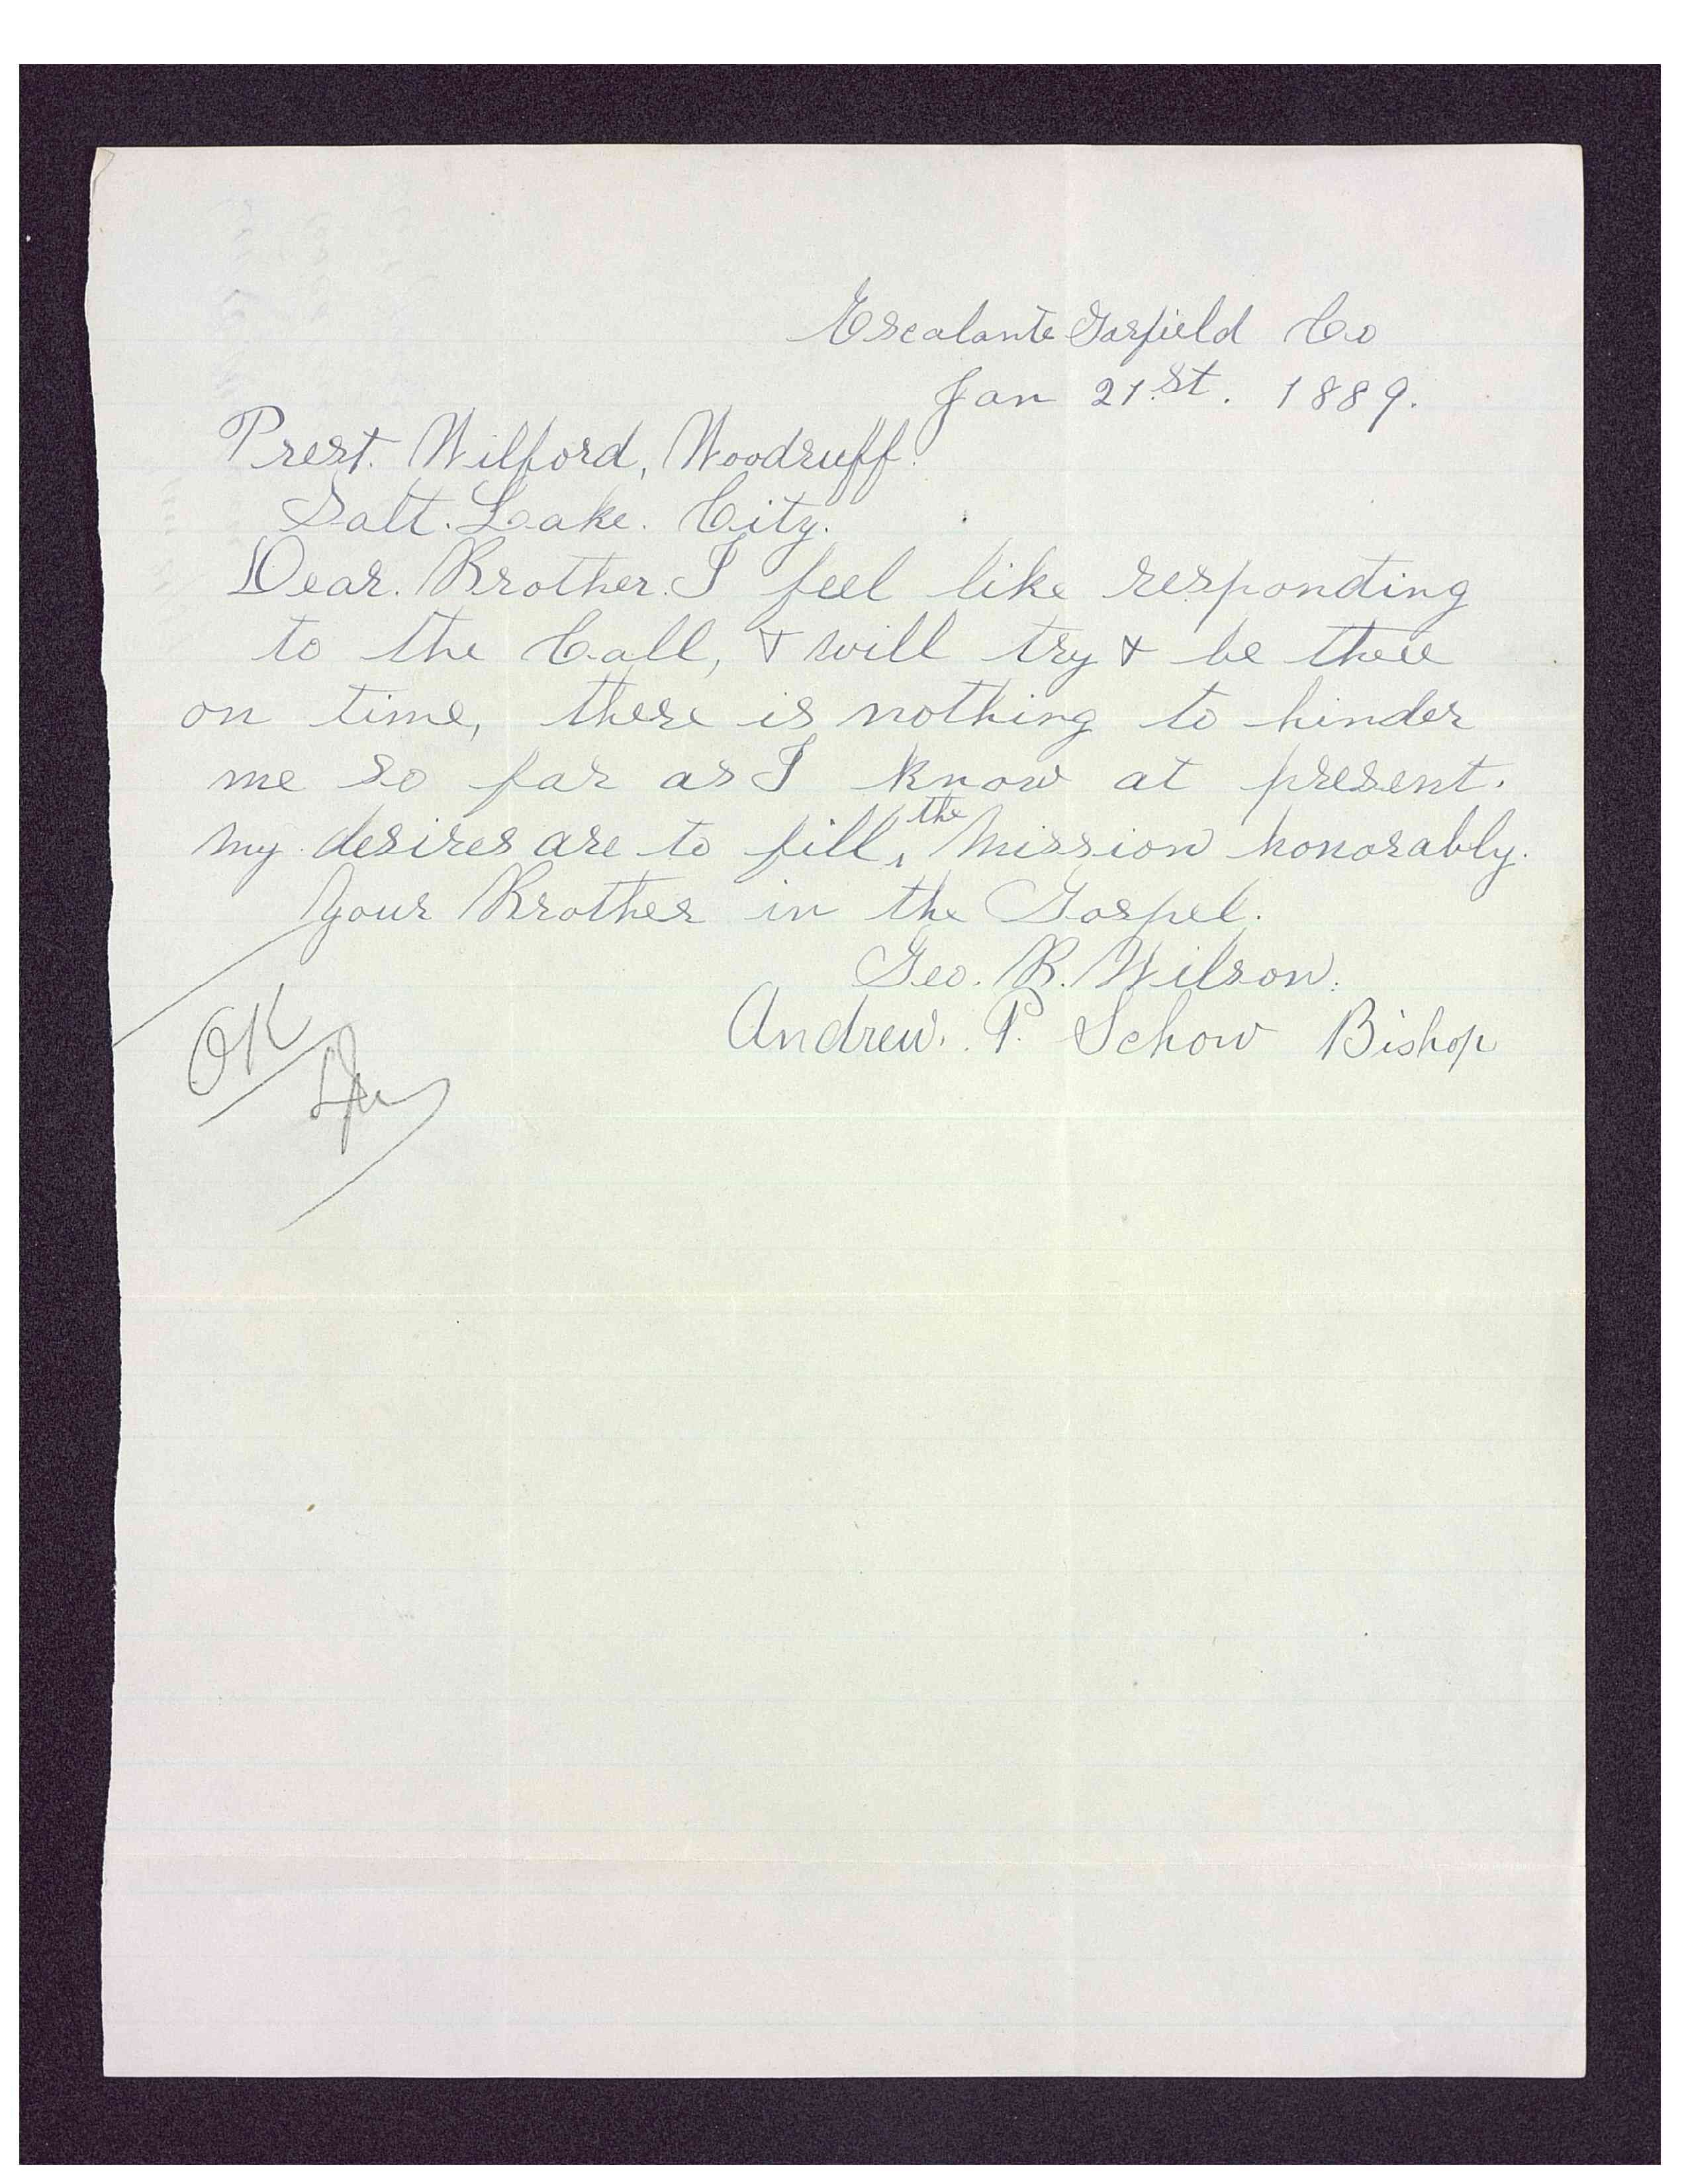 Escalante Garfield Co
Jan 21.st. 1889.
Prest. Wilford, Woodruff.
Salt. Lake. City.
Dear. Brother. I feel like responding
to the Call, & will try & be there
on time, there is nothing to hinder
me so far as I know at present.
my desires are to fill, the mission honorably.
Your Brother in the Gospel.
Geo. B. Wilson.
Andrew. P. Schow Bishop
OK